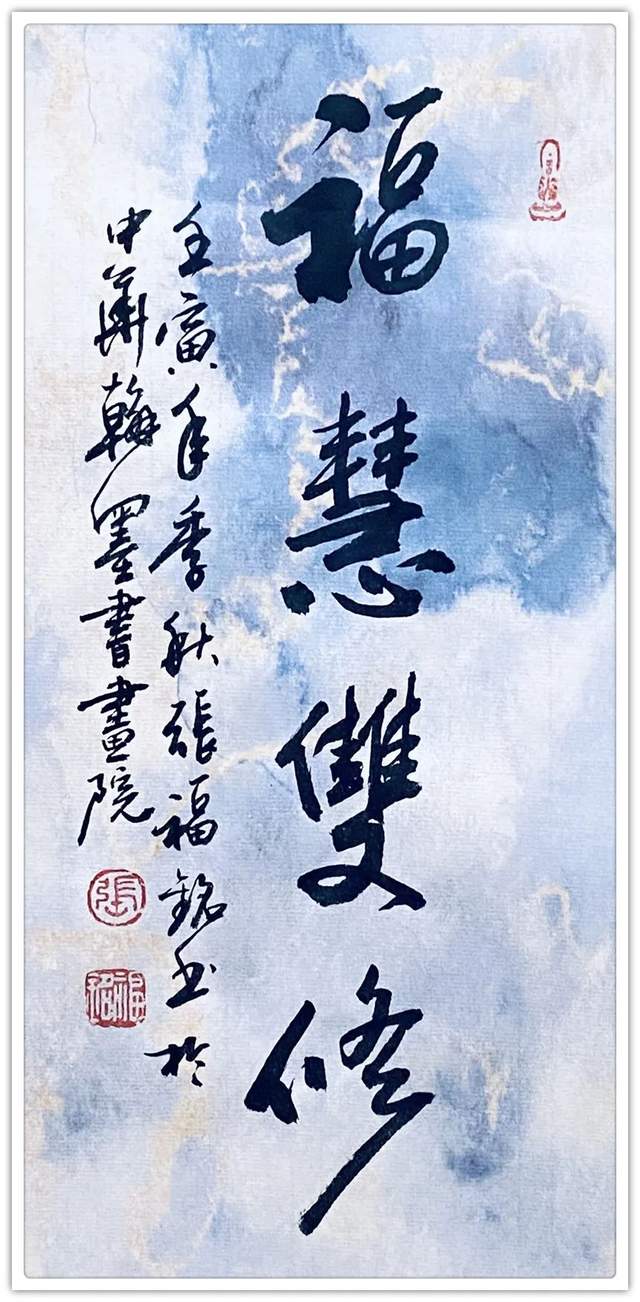 福慧雙修
壬寅年季秋張福銘书於
中華翰墨書畫院
張
福銘